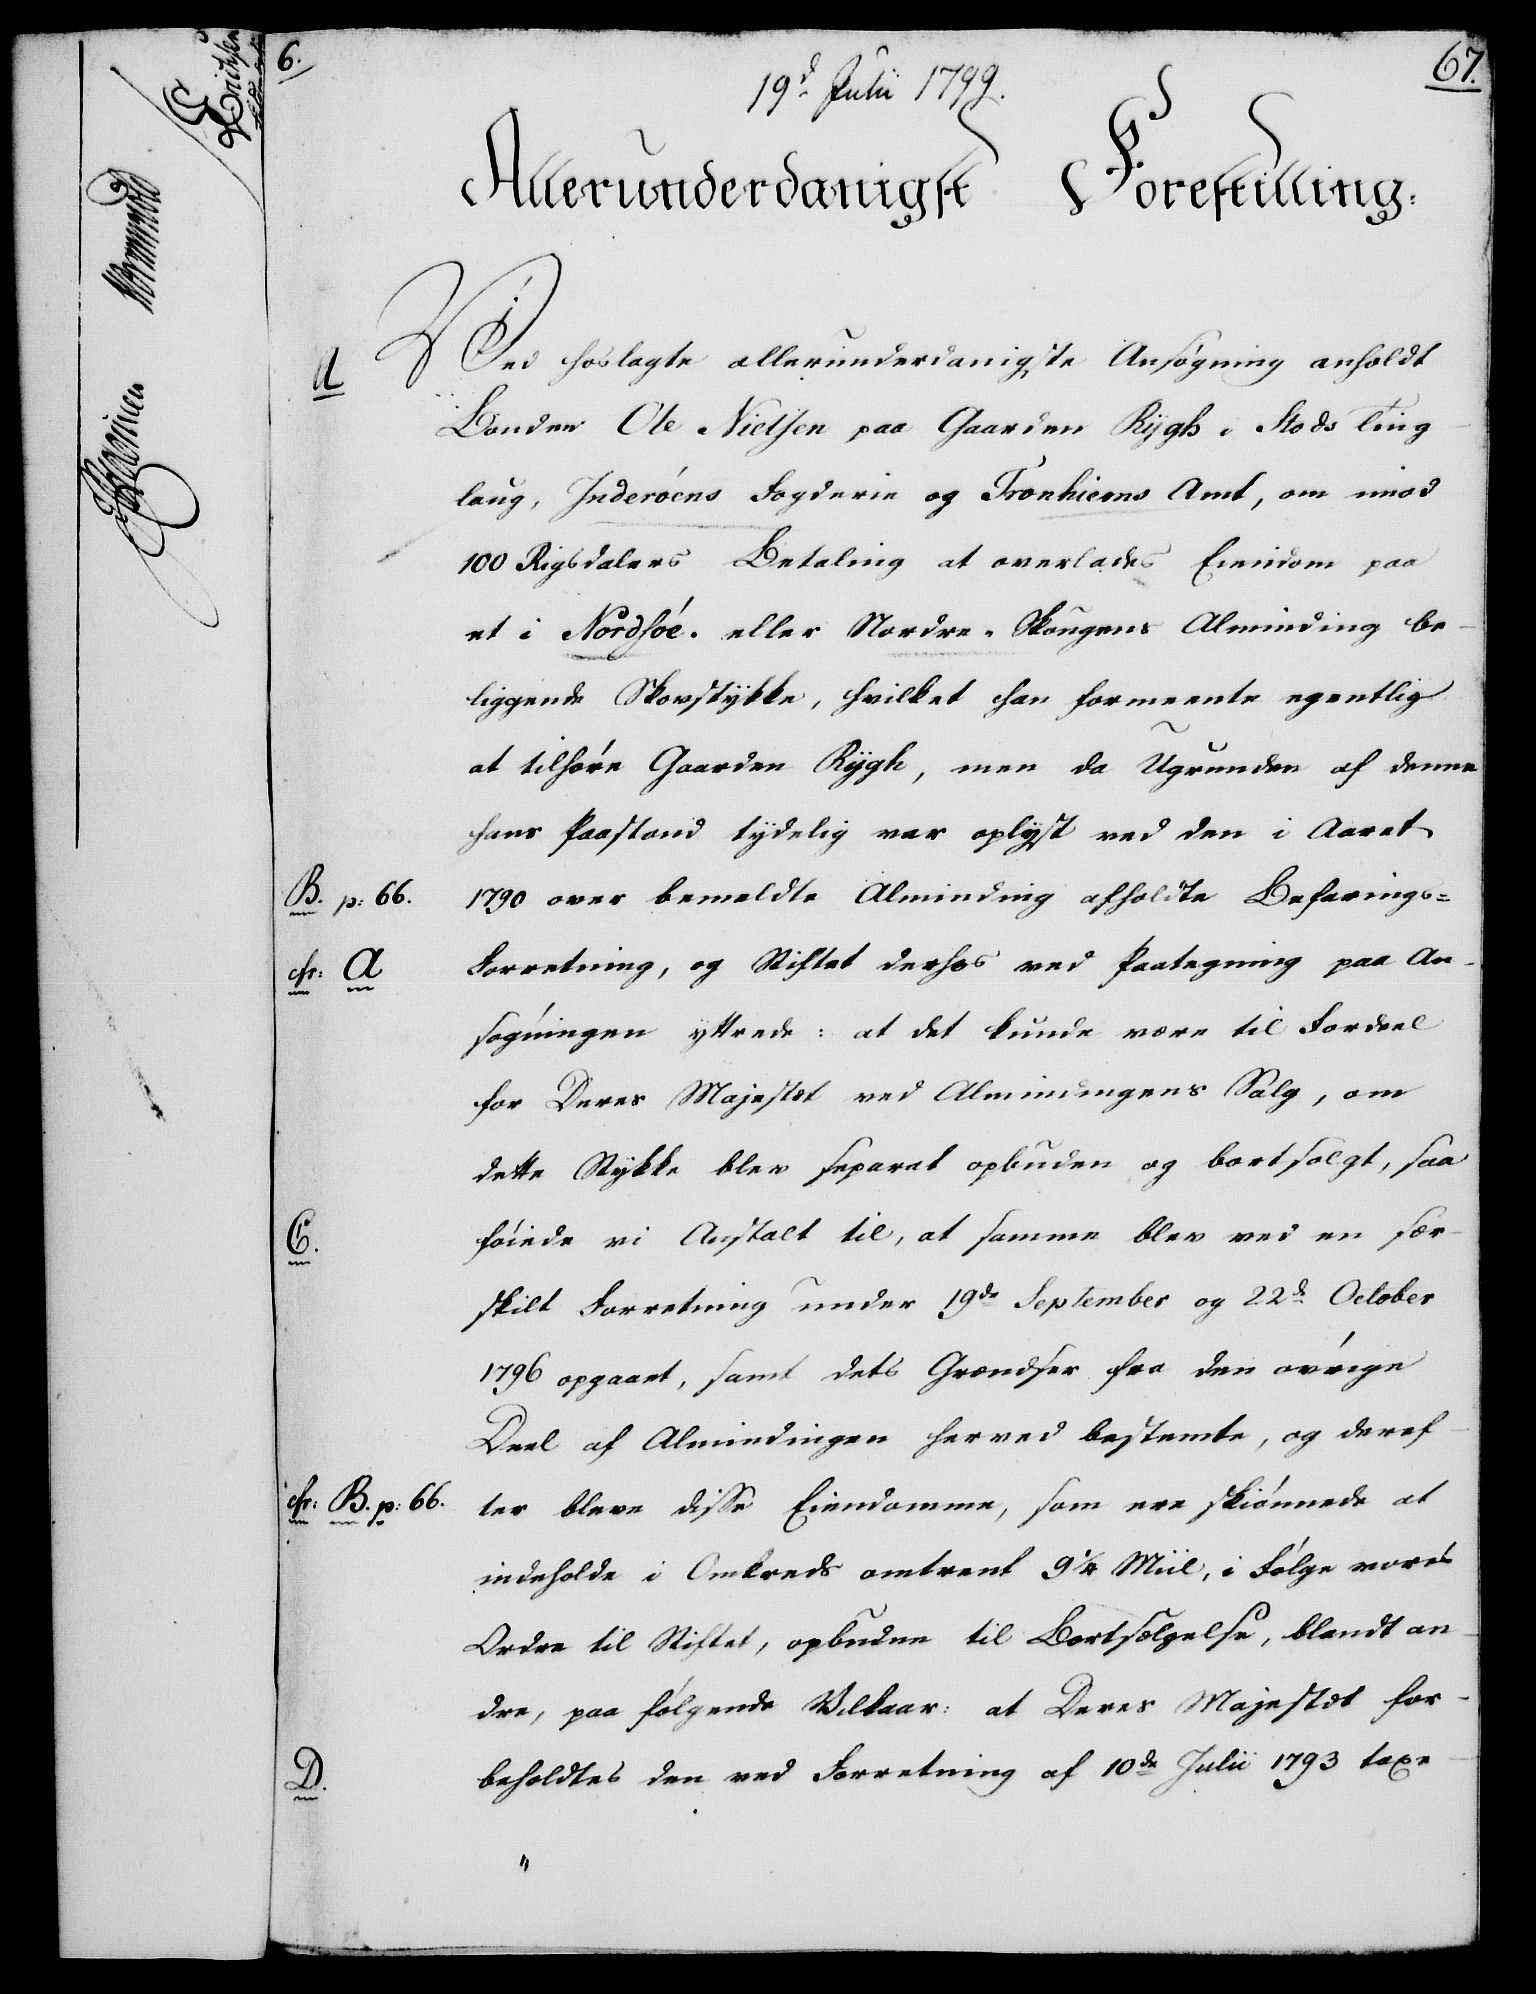 6.
67.
19d Julii 1799.
Allerunderdanigst Forestilling:
A
Ved hoslagte allerunderdanigste Ansøgning anholdt
Bonden Ole Nielsen paa Gaarden Rygh i Stods Ting-
laug, Inderöens Fogderie og Tronhiems Amt, om imod
100 Rigsdalers Betaling at overlades Eiendom paa
et i Nordsöe- eller Nordre-Skougens Alminding be-
liggende Skovstykke, hvilket han formeente egentlig
at tilhøre Gaarden Rygh, men da Ugrunden af denne
hans Paastand tydelig var oplyst ved den i Aaret
B. p: 66.
1790 over bemeldte Alminding afholdte Befarings=
cfr: A
Forretning, og Stiftet derhos ved Paategning paa An-
søgningen yttrede: at det kunde være til Fordeel
for Deres Majestæt ved Almindingens Salg, om
dette Stykke blev separat opbuden og bortsolgt, saa
C.
føiede vi Anstalt til, at samme blev ved en sær-
skilt Forretning under 19de September og 22d October
1796 opgaaet, samt dets Grændser fra den øvrige
Deel af Almindingen herved bestemte, og deref-
cfr: B. p: 66.
ter bleve disse Eiendomme, som ere skiønnede at
indeholde i Omkreds omtrent 9¼ Miil, i Følge vores
Ordre til Stiftet, opbudne til Bortsælgelse, blandt an-
dre, paa følgende Vilkaar: at Deres Majestæt for-
D.
beholdtes den ved Forretning af 10de Julii 1793 taxe-
"